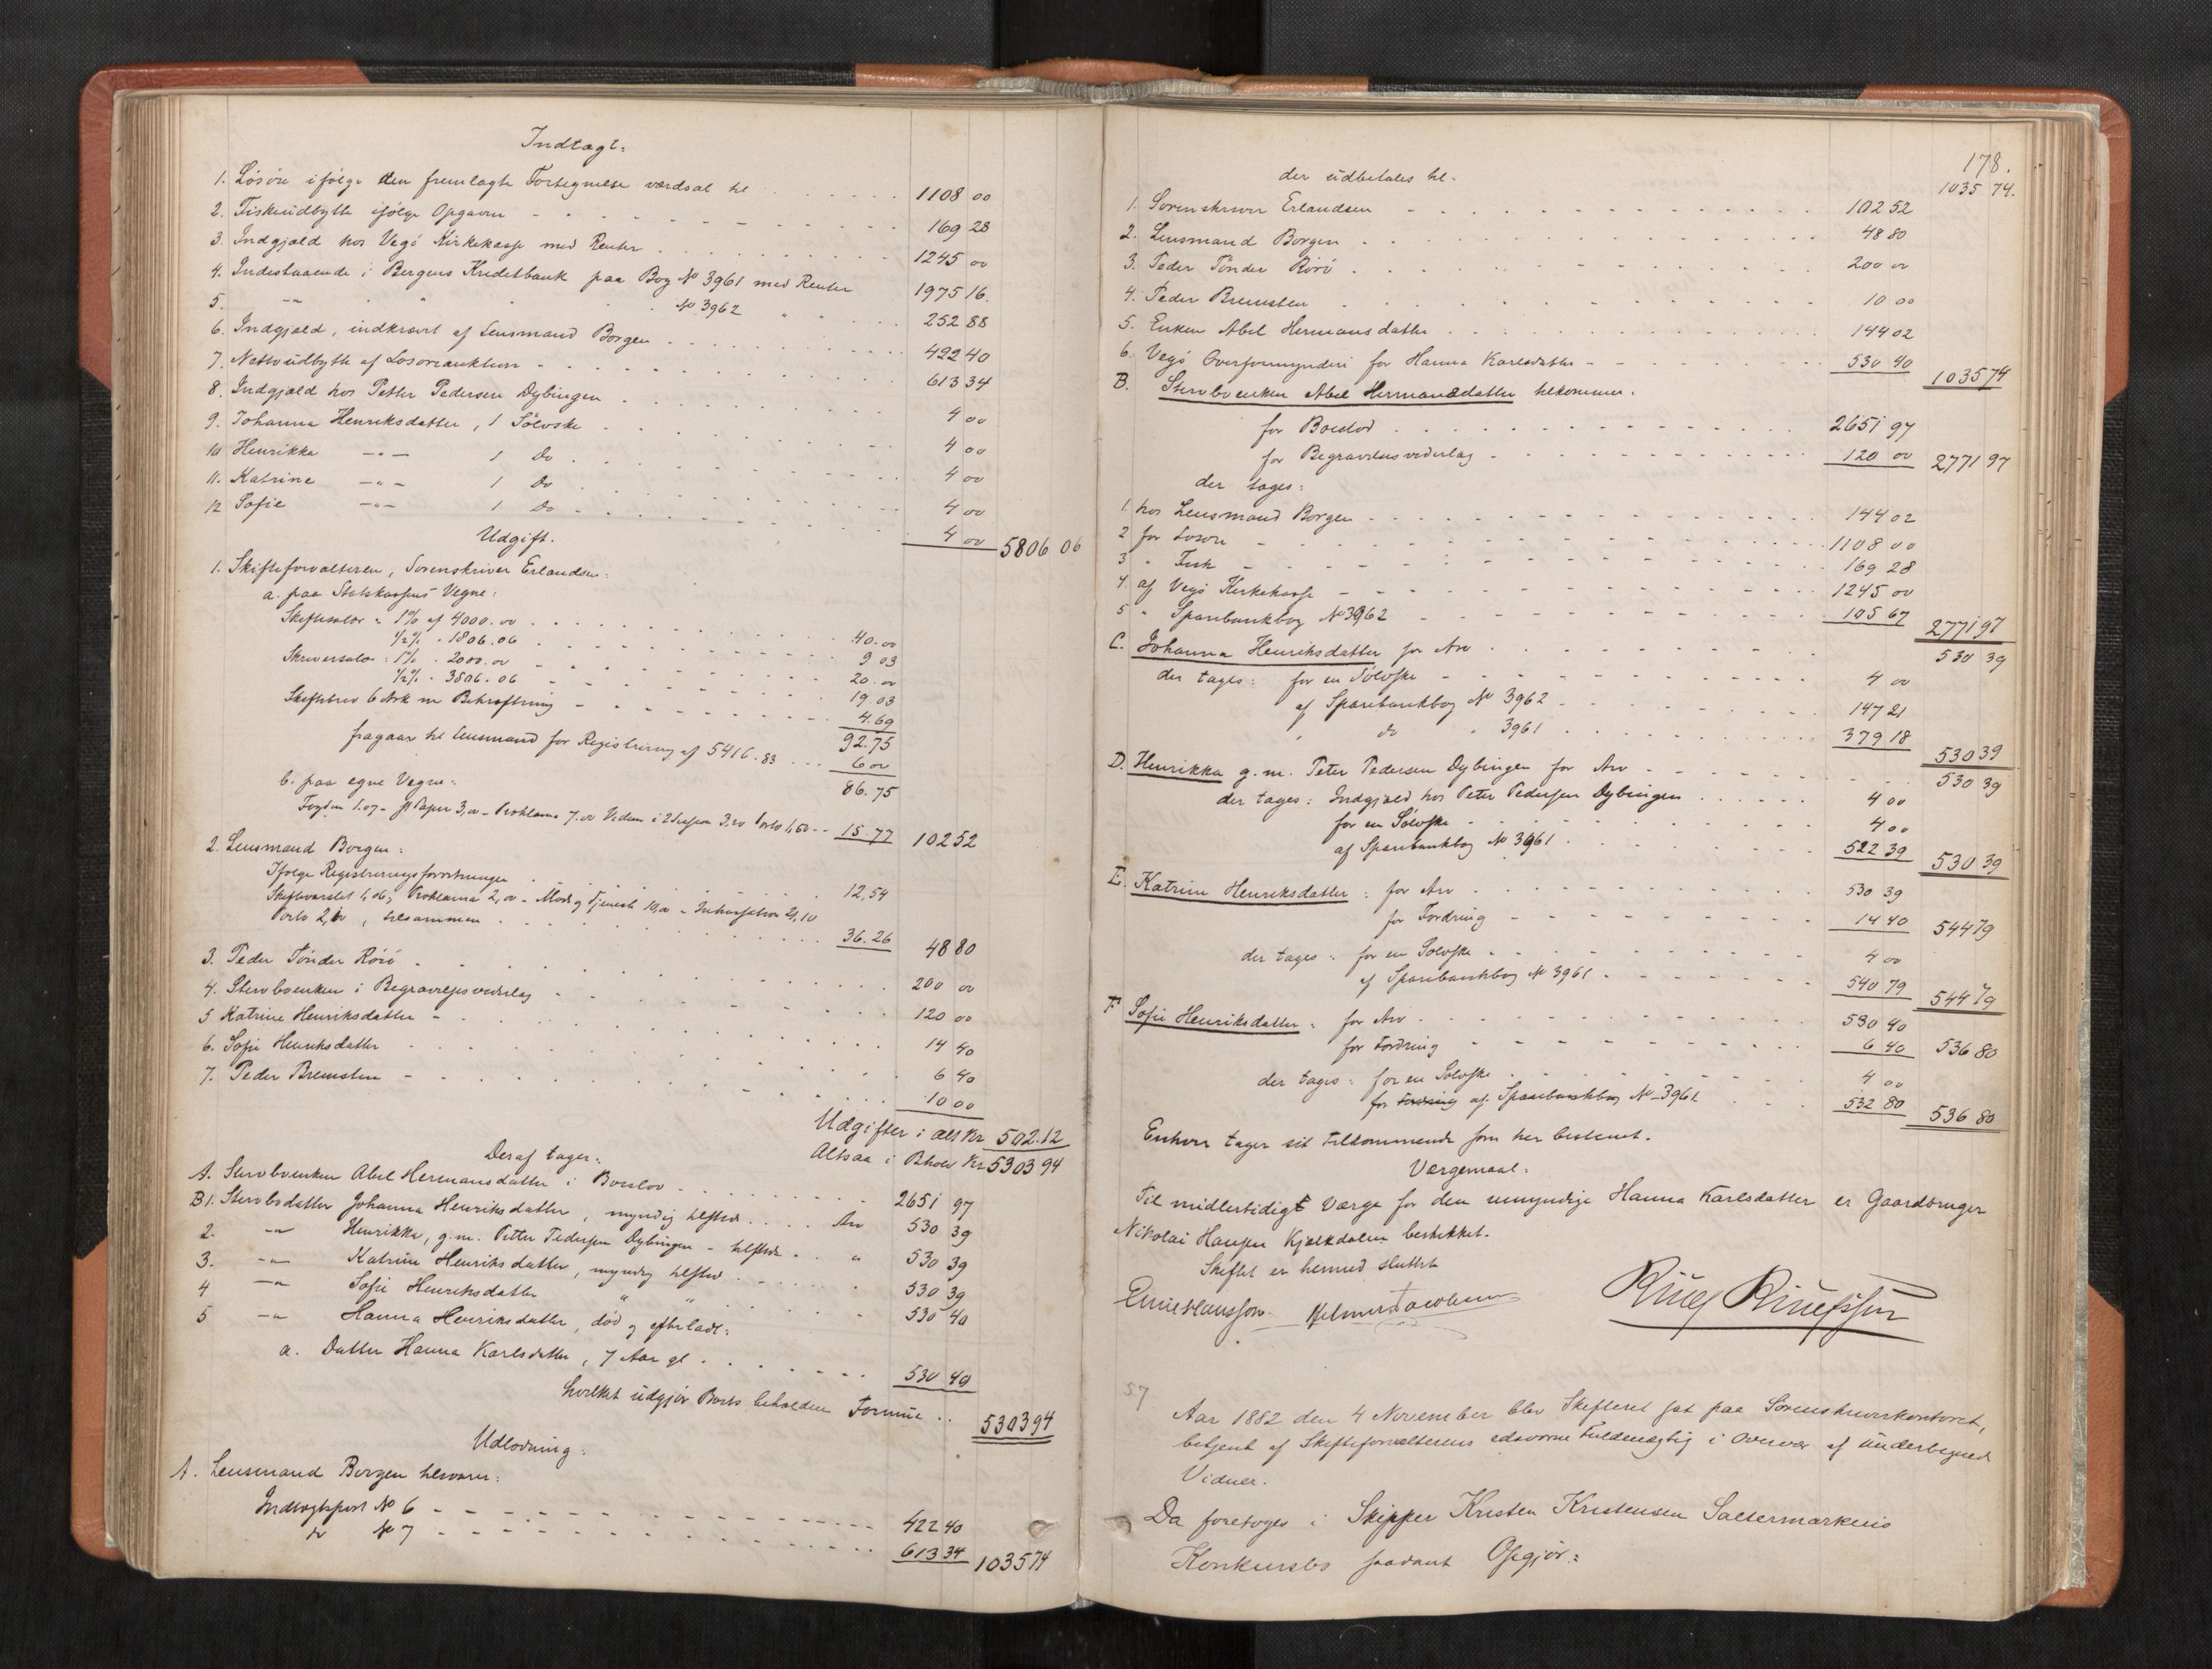 Indtægt:
1. Løsøre ifølge den fremlagte Fortegnelse værdsat til . . . . . 1108 00
2. Fiskeudbytte ifølge Opgaven - - - - - 169 28
3. Indgjæld hos Vegö Kirkekasse med Renter . . . . . 1245 00
4. Indestaaende i Bergens Kreditbank paa Bog No 3961 med Renter 1975 16.
5. -"- " " No 3962 " " . . . . 252 88
6. Indgjæld, indkrævet af Lensmand Borgen . . . . . 422 40
7. Nettoudbytte af Løsøreauktion - . . . . . 613 34
8. Indgjæld hos Petter Pedersen Dybingen . . . . . 4 00
9. Johanna Henriksdatter, 1 Sölvske . . . . . 4 00
10 Henrikka -"- 1 Do . . . . . 4 00
11. Katrine -"- 1 Do . . . . . 4 00
12 Sofie -"- 1 Do . . . . . 4 00 5806 06
Udgift.
1. Skifteforvalteren, Sorenskriver Erlandsen:
a. paa Statskassens Vegne:
Skiftesalær = 1% af 4000.00 . . . . . 40.00
1/2% - 1806.06 . . . . . 9 03
Skriversalær: 1% . 2000.00 - - - - 20.00
1/2% - 3806.06 - - - - 19 03
Skiftebrev 6 Ark m Bekræftning - - - - 4.69
92.75
fragaar til Lensmand for Registrering af 5416.83 . . . 6 00
86.75
b. paa egne Vegne:
Fogden 1.07 - st Papir 3,00 - Proklama 7.00 Vidner i 2 3.20 Porto 1,50 - - 15.77 102 52
2. Lensmand Borgen:
Ifølge Registreringsforretningen . . . . . 12,54
Skiftevarslet 1,06, Proklama 2,00 - 10,00 - Inkassation 21,10
Porto 2,10, tilsammen . . . . . 36.26 48 80
3. Peder Tönder Rörö - . . . . . 200 00
4. Stervboenken i Begravelsesvederlag - . . . . . 120 00
5 Katrine Henriksdatter - . . . . . 14 40
6. Sofie Henriksdatter . . . . . 6 40
7. Peder Bremsten - . . . . . 10 00
Udgifter i alt Kr 502.12
Altsaa i Behold Kr 5303 94
Deraf tager:
A. Stervboenken Abel Hermansdatter i Boeslod . . . . . 2651 97
B1. Stervbsdatter Johanna Henriksdatter, myndig tilstede . . . . Arv 530 39
2. -"- Henrikka, g.m. Petter Pedersen Dybingen - tilstede . . " 530 39
3. -"- Katrine Henriksdatter, myndig tilsted . . . . . 530 39
4 -"- Sofie Henriksdatter " " . . . . . 530 40
5 -"- Hanna Henriksdatter, död og efterladt:
a. Datter Hanna Karlsdatter, 7 Aar gl . . . . . 530 40
hvilket udgjør Boets beholdne Formue . . 5303 94
Udlodning:
A. Lensmand Borgen tilsvarer:
Indtægtspost No 6 - - - - - 422 40
do No 7 - - - - - 613 34 1035 74
178.
der udbetales til. 1035 74.
1. Sorenskriver Erlandsen - . . . . . 102 52
2. Lensmand Borgen . . . . . 48 80
3. Peder Tönder Rörö . . . . . 200 00
4. Peder Bremsten . . . . . 10 00
5. Enken Abel Hermansdatter . . . . . 144 02
6. Vegö Overformynderi for Hanna Karlsdatter - - - - 530 40 1035 74
B. Stervboenken Abel Hermansdatter tilkommer.
for Boeslod . . . . . 2651 97
for Begravelsesvederlag . . . . . 120 00 2771 97
der tages:
1. hos Lensmand Borgen - - - - - 144 02
2 for Løsøre - - - - - 1108 00
3 " Fisk - - - - - 169 28
4. af Vegö Kirkekasse - - - - - 1245 00
5 " Sparebankbog No 3962 - - - - - 105 67 2771 97
C. Johanna Henriksdatter for Arv . . . . . 530 39
der tages: for en Sölvske - - - - - 4 00
af Sparebankbog No 3962 - . . . . . 147 21
" do " 3961 . . . . . 379 18 530 39
D. Henrikka g.m. Peter Pedersen Dybingen for Arv - - - - - 530 39
der tages: Indgjæld hos Peter Pedersen Dybingen . . . . . 4 00
for en Sölvske - - - - - 4 00
af Sparebankbog No 3961 . . . . . 522 39 530 39
E. Katrine Henriksdatter: for Arv - . . . . . 530 39
for Fordring - - - - - 14 40 544 79
der tages: for en Sölvske - - - - - 4 00
af Sparebankbog No 3961 - . . . . . 540 79 544 79
F Sofie Henriksdatter: for Arv - . . . . . 530 40
for Fordring - - - - - 6 40 536 80
der tages: for en Sölvske . . . . . 4 00
for Fordring af Sparebankbog No 3961 . . . 532 80 536 80
Enhver tager sit tilkommende som her bestemt.
Værgemaal.
Til midlertidigt Værge for den umyndige Hanna Karlsdatter er Gaardbruger
Nikolai Hansen Kjælkdalen beskikket.
Skiftet er hermed sluttet
Emil Hansson Hilmar Jacobsen
57
Aar 1882 den 4 November blev Skifteret sat paa Sorenskriverkontoret,
betjent af Skifteforvalterens edsvorne Fuldmægtig i Overvær af Underbegned
Vidner.
Da foretoges i Skipper Kristen Kristensen Saltermarkens
Konkursbo saadant Opgjør: